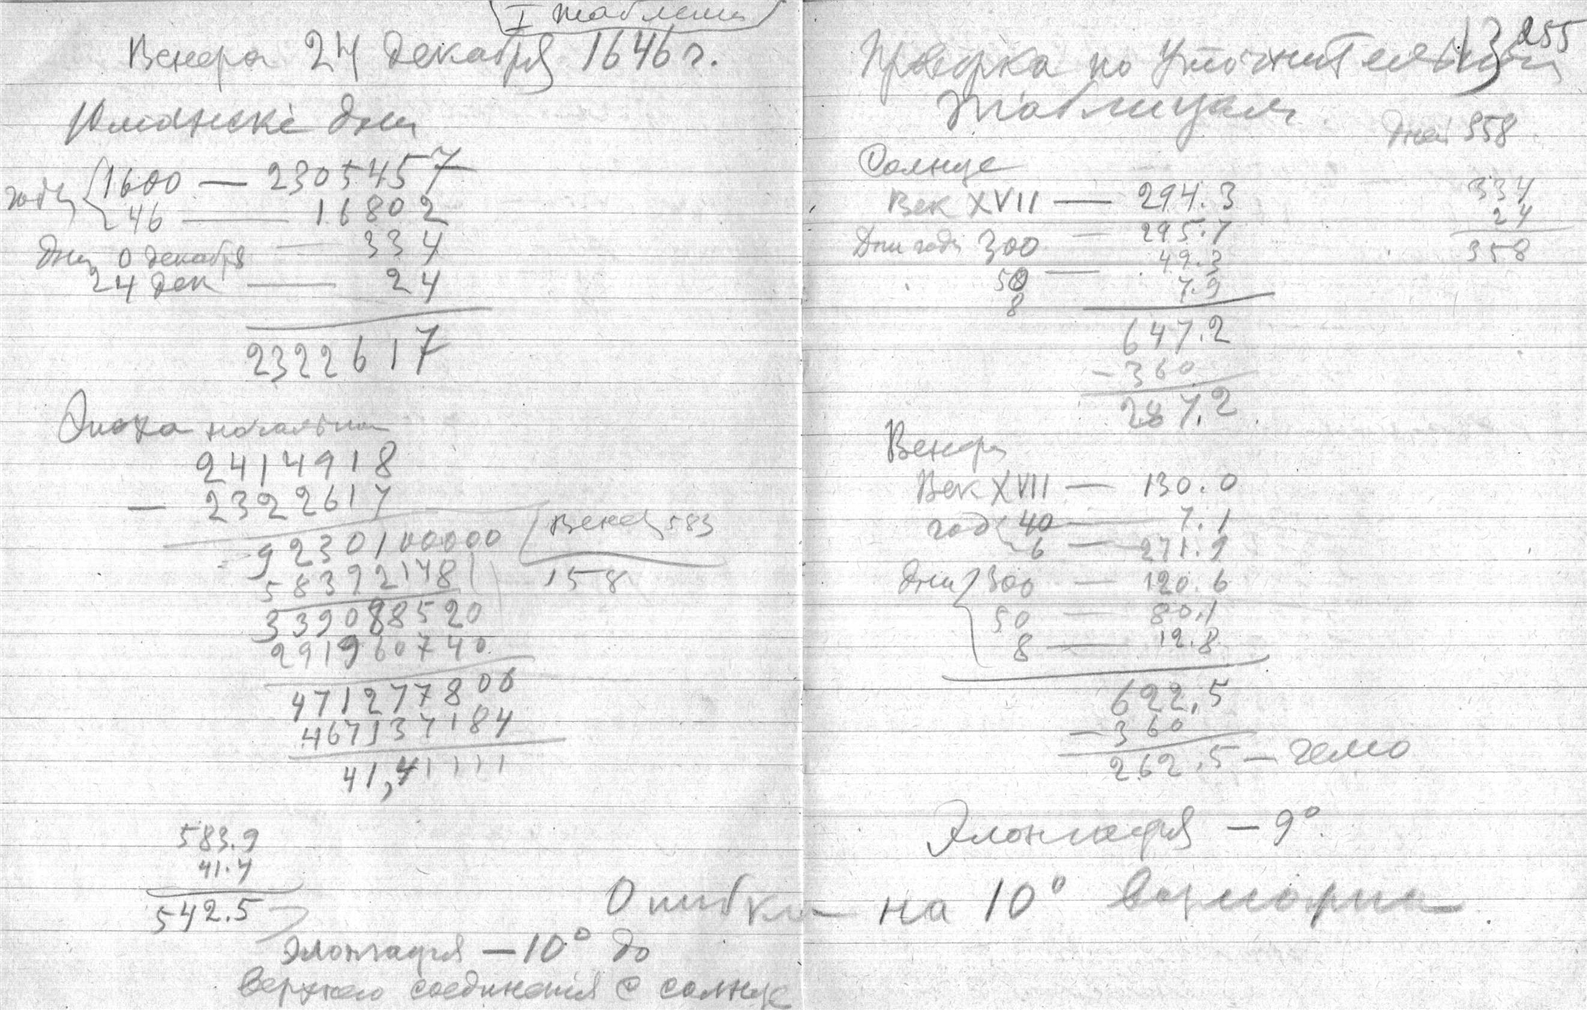 I таблица
Венера 24 декабря 1646 г.
Юлианские дни
годы 1600 — 2305457
46 — 16802
дни 0 декабря — 334
24 дек — 24
2322617
Эпоха начальная
2414918
— 2322617
9230100000 Венеры 583
58392148 158
339088520
291960740
471277800
467137184
41,41111
583.9
41.4
542.5
Элонгация — 10° до
верхнего соединения с солнце
255
13
Проверка по уточнительным
таблицам
дней 358
Солнце
Век XVII — 294.3 334
24
Дни года 300 — 295.7 358
50 — 49.3
8 7.9
647.2
— 360
287.2
Венера
Век XVII — 130.0
годы 40 — 7.1
6 — 271.9
дни 300 — 120.6
50 — 80.1
8 — 12.8
622.5
— 360
262.5 — гелио
Элонгация — 9°
Ошибка на 10°